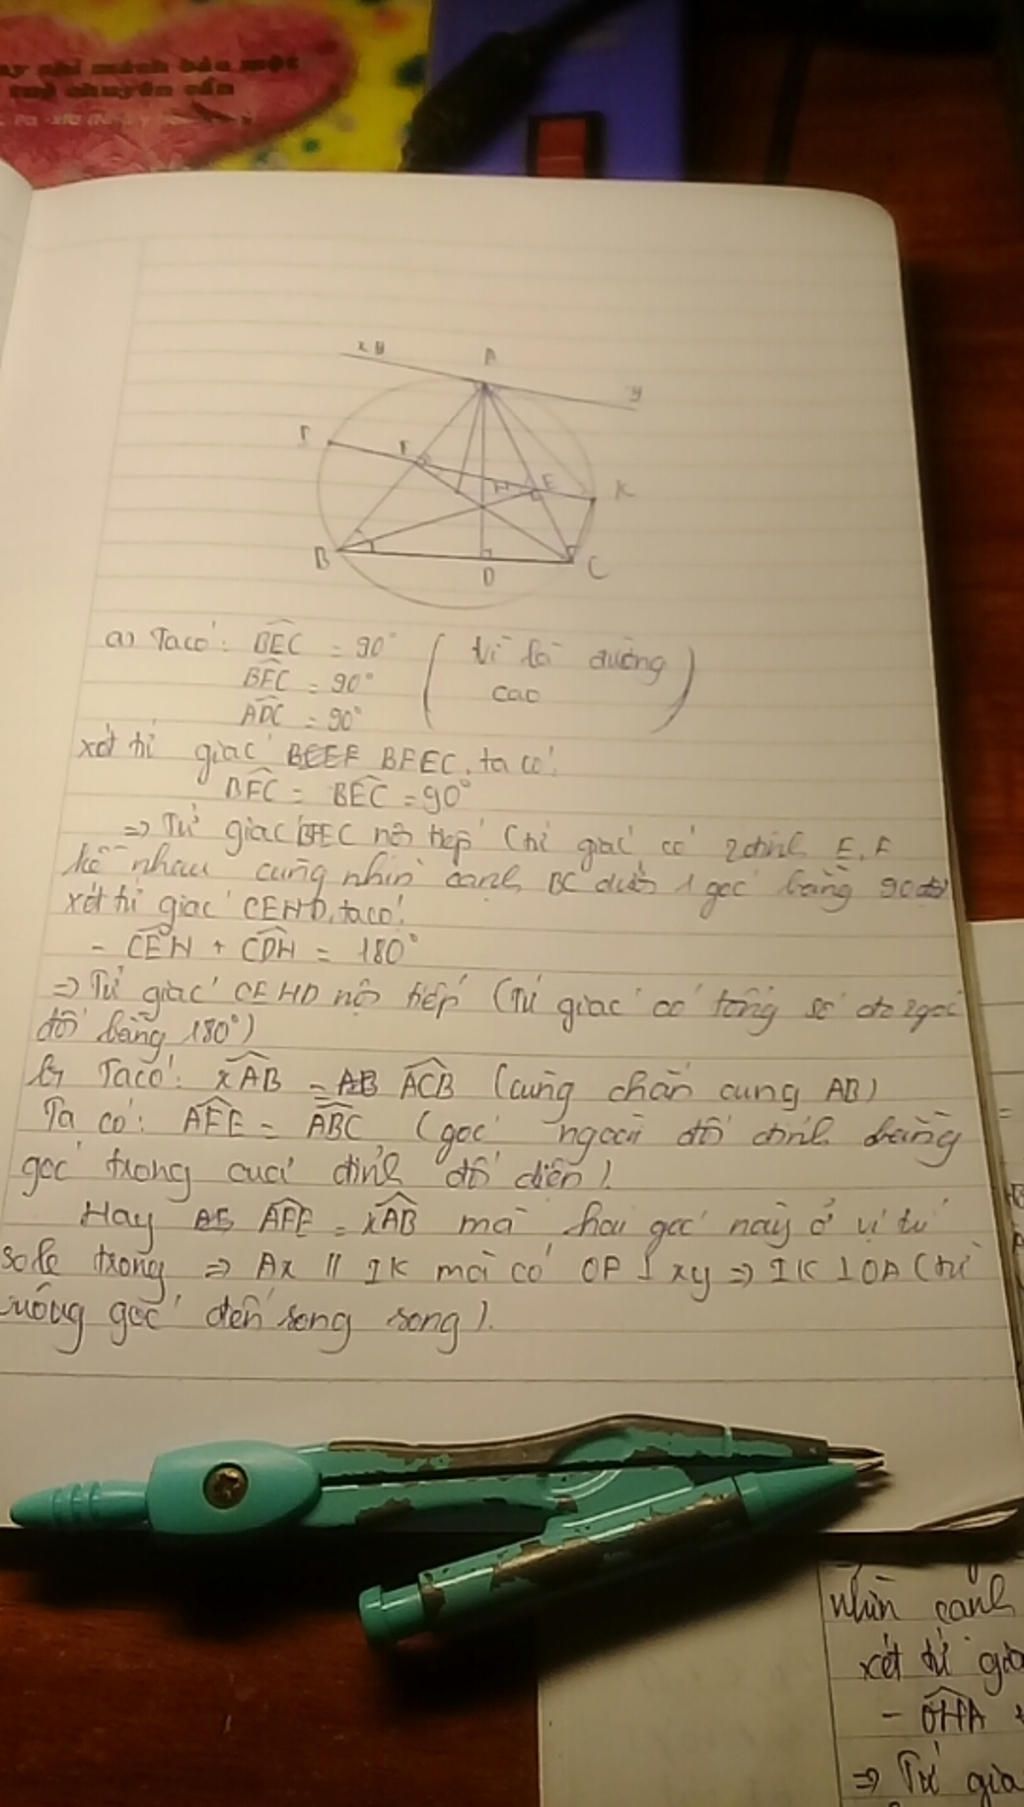 ay ghi mách bảo một
tuệ chuyên cần
x y
A
y
I
F
H
E
K
B
D
C
a) Ta có: BEC = 90° ( vì là đường
BFC = 90° cao )
ADC = 90°
xét tứ giác BFEC, ta có:
BFC = BEC = 90°
=> Tứ giác BFEC nội tiếp (tứ giác có 2 đỉnh E, F
kề nhau cùng nhìn cạnh BC dưới 1 góc bằng 90 độ)
xét tứ giác CEHD, ta có:
- CEH + CDH = 180°
=> Tứ giác CEHD nội tiếp (Tứ giác có tổng số đo 2 góc
đối bằng 180°)
b) Ta có: xAB = ACB (cùng chắn cung AB)
Ta có: AFE = ABC (góc ngoài đỉnh bằng
góc trong của đỉnh đối diện).
Hay AFE = xAB mà hai góc này ở vị trí
so le trong => Ax // IK mà có OA ⊥ xy => IK ⊥ OA (từ
vuông góc đến song song).
nhìn cạnh
xét tứ giá
- OHA +
=> Tứ giá